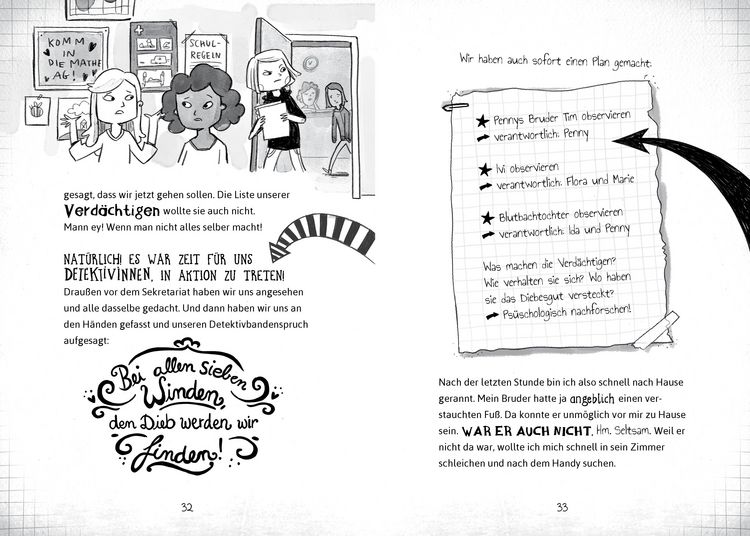 KOMM
IN
DIE MATHE
AG!
SCHUL-
REGELN
gesagt, dass wir jetzt gehen sollen. Die Liste unserer
Verdächtigen wollte sie auch nicht.
Mann ey! Wenn man nicht alles selber macht!
NATÜRLICH! ES WAR ZEIT FÜR UNS
DETEKTIVINNEN, IN AKTION ZU TRETEN!
Draußen vor dem Sekretariat haben wir uns angesehen
und alle dasselbe gedacht. Und dann haben wir uns an
den Händen gefasst und unseren Detektivbandenspruch
aufgesagt:
Bei allen sieben
Winden,
den Dieb werden wir
finden!
32
Wir haben auch sofort einen Plan gemacht:
★ Pennys Bruder Tim observieren
➡ verantwortlich: Penny
★ Ivi observieren
➡ verantwortlich: Flora und Marie
★ Blutbachtochter observieren
➡ verantwortlich: Ida und Penny
Was machen die Verdächtigen?
Wie verhalten sie sich? Wo haben
sie das Diebesgut versteckt?
➡ Psüschologisch nachforschen!
Nach der letzten Stunde bin ich also schnell nach Hause
gerannt. Mein Bruder hatte ja angeblich einen ver-
stauchten Fuß. Da konnte er unmöglich vor mir zu Hause
sein. WAR ER AUCH NICHT. Hm. Seltsam. Weil er
nicht da war, wollte ich mich schnell in sein Zimmer
schleichen und nach dem Handy suchen.
33